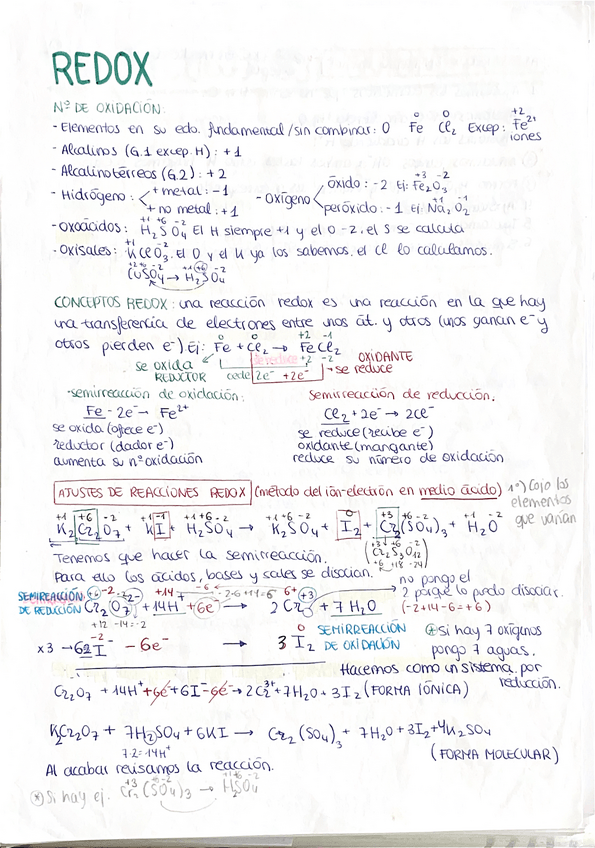 REDOX
Nº DE OXIDACIÓN:
- Elementos en su edo. fundamental/sin combinar: 0 Fe⁰ Cl₂⁰ Excep: Fe²⁺ +2
iones
- Alcalinos (G.1 excep. H): +1
- Alcalinotérreos (G.2): +2
- Hidrógeno: + metal: -1
+ no metal: +1
- Oxígeno óxido: -2 Ej: Fe₂O₃ +3 -2
peróxido: -1 Ej: Na₂O₂ +1 -1
- Oxoácidos: H₂SO₄ +1 +6 -2 El H siempre +1 y el O -2, el S se calcula
- Oxisales: KClO₃ +1 -2. El O y el K ya los sabemos, el Cl lo calculamos.
CuSO₄ +2 +6 -2 → H₂SO₄ +1 +6 -2
CONCEPTOS REDOX: una reacción redox es una reacción en la que hay
una transferencia de electrones entre unos át. y otros (unos ganan e⁻ y
otros pierden e⁻) Ej: Fe⁰ + Cl₂⁰ → FeCl₂ +2 -1
se oxida
REDUCTOR
cede 2e⁻ +2e⁻
se reduce
OXIDANTE
→ se reduce
semirreacción de oxidación:
Fe - 2e⁻ → Fe²⁺
se oxida (ofrece e⁻)
reductor (dador e⁻)
aumenta su nº oxidación
semirreacción de reducción:
Cl₂ + 2e⁻ → 2Cl⁻
se reduce (recibe e⁻)
oxidante (mangante)
reduce su número de oxidación
AJUSTES DE REACCIONES REDOX (método del ión-electrón en medio ácido)
1º) Cojo los
elementos
que varían
+1 +6 -2 +1 -1 +1 +6 -2 +1 +6 -2 0 +3 +6 -2 +1 -2
K₂Cr₂O₇ + KI + H₂SO₄ → K₂SO₄ + I₂ + Cr₂(SO₄)₃ + H₂O
Tenemos que hacer la semirreacción.
(Cr₂S₃O₁₂)
+6 +18 -24
Para ello los ácidos, bases y sales se disocian.
no pongo el
2 porque lo puedo disociar.
(-2+14-6=+6)
SEMIREACCIÓN
DE REDUCCIÓN
Cr₂O₇ + 14H + 6e⁻ → 2Cr⁺³ + 7H₂O
+12 -14 = -2
x3 → 6 2I⁻ - 6e⁻ → 3 I₂
SEMIRREACCIÓN
DE OXIDACIÓN
* si hay 7 oxígenos
pongo 7 aguas.
Hacemos como un sistema por
reducción.
Cr₂O₇ + 14H⁺ + 6e⁻ + 6I - 6e⁻ → 2Cr³⁺ + 7H₂O + 3I₂ (FORMA IÓNICA)
K₂Cr₂O₇ + 7H₂SO₄ + 6KI → Cr₂(SO₄)₃ + 7H₂O + 3I₂ + 4K₂SO₄
7·2=14H⁺
(FORMA MOLECULAR)
Al acabar revisamos la reacción.
* Si hay ej. Cr₂(SO₄)₃ +3 +6 -2 → H₂SO₄ +1 +6 -2